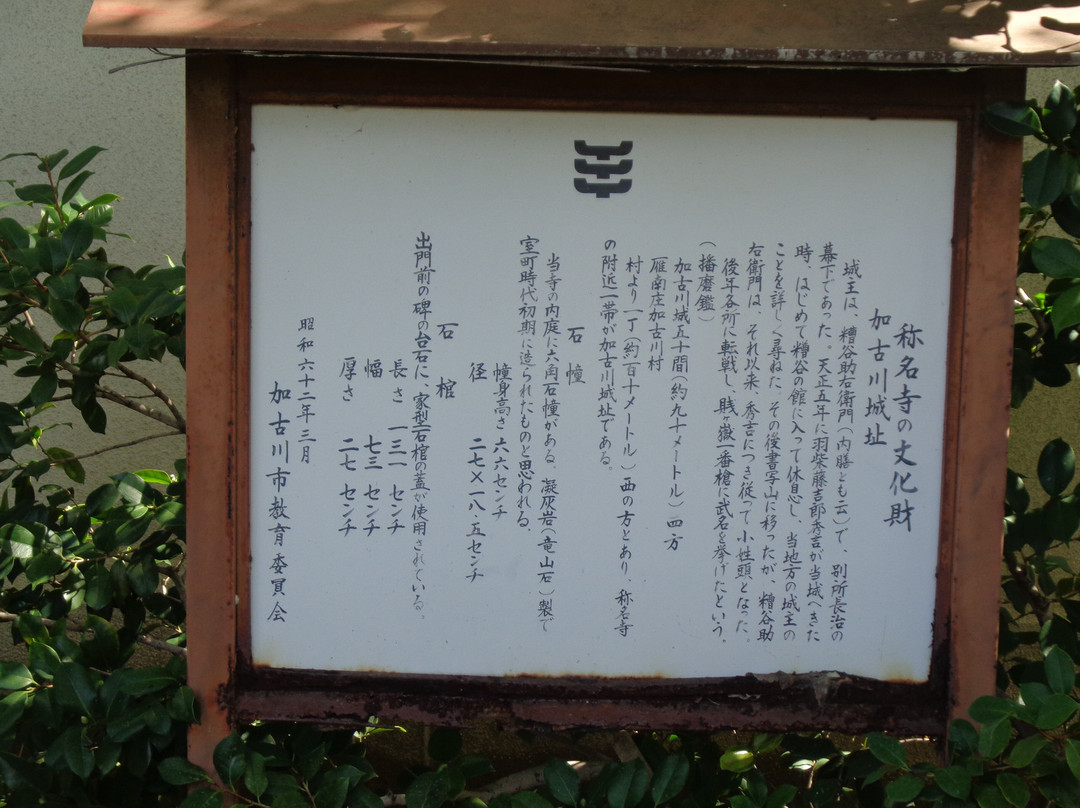 称名寺の文化財
加古川城址
城主は、糟谷助右衛門(内膳とも云)で、別所長治の
幕下であった。天正五年に羽柴藤吉郎秀吉が当城へきた
時、はじめて糟谷の館に入って休息し、当地方の城主の
ことを詳しく尋ねた。その後書写山に移ったが、糟谷助
右衛門は、それ以来、秀吉につき従って小姓頭となった。
後年各所に転戦し、賎ヶ嶽一番槍に武名を挙げたという。
(播磨鑑)
加古川城五十間(約九十メートル)四方
雁南庄加古川村
村より一丁(約百十メートル)西の方とあり、称名寺
の附近一帯が加古川城址である。
石幢
当寺の内庭に六角石幢がある。凝灰岩(竜山石)製で
室町時代初期に造られたものと思われる。
幢身高さ 六六センチ
径 二七×一八・五センチ
石棺
出門前の碑の台石に、家型石棺の蓋が使用されている。
長さ 一三一 センチ
幅 七三 センチ
厚さ 二七 センチ
昭和六十二年三月
加古川市教育委員会